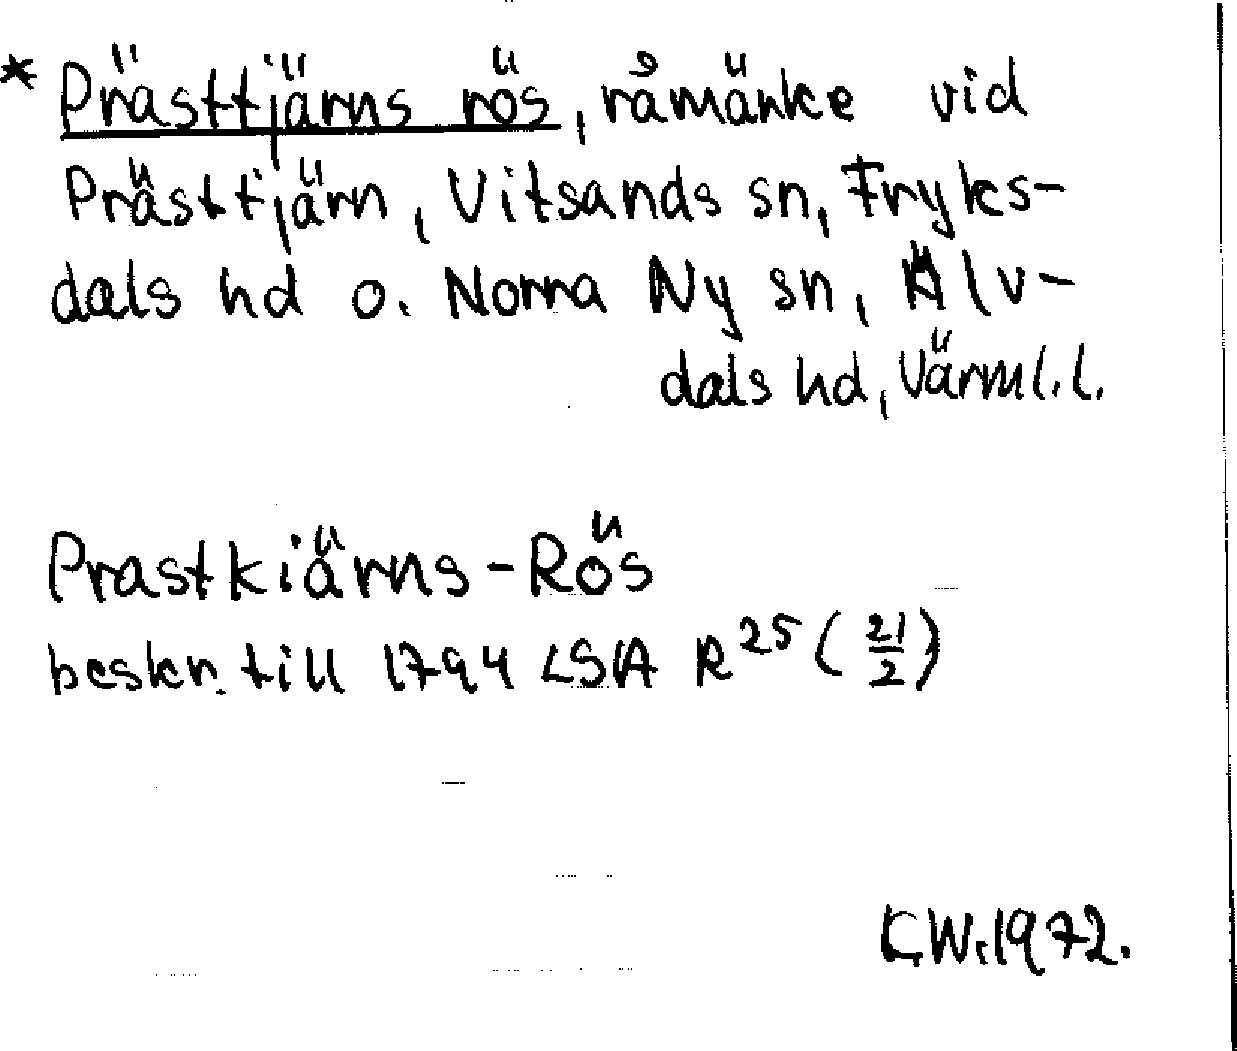 * Prästtjärns rös, råmärke vid
Prästtjärn, Vitsands sn, Frykes-
dals hd o. Norra Ny sn, Älv-
dals hd, Värml. l.
Prastkiärns-Rös
beskr. till 1794 LSA R 25 (21/2)
K.W. 1972.